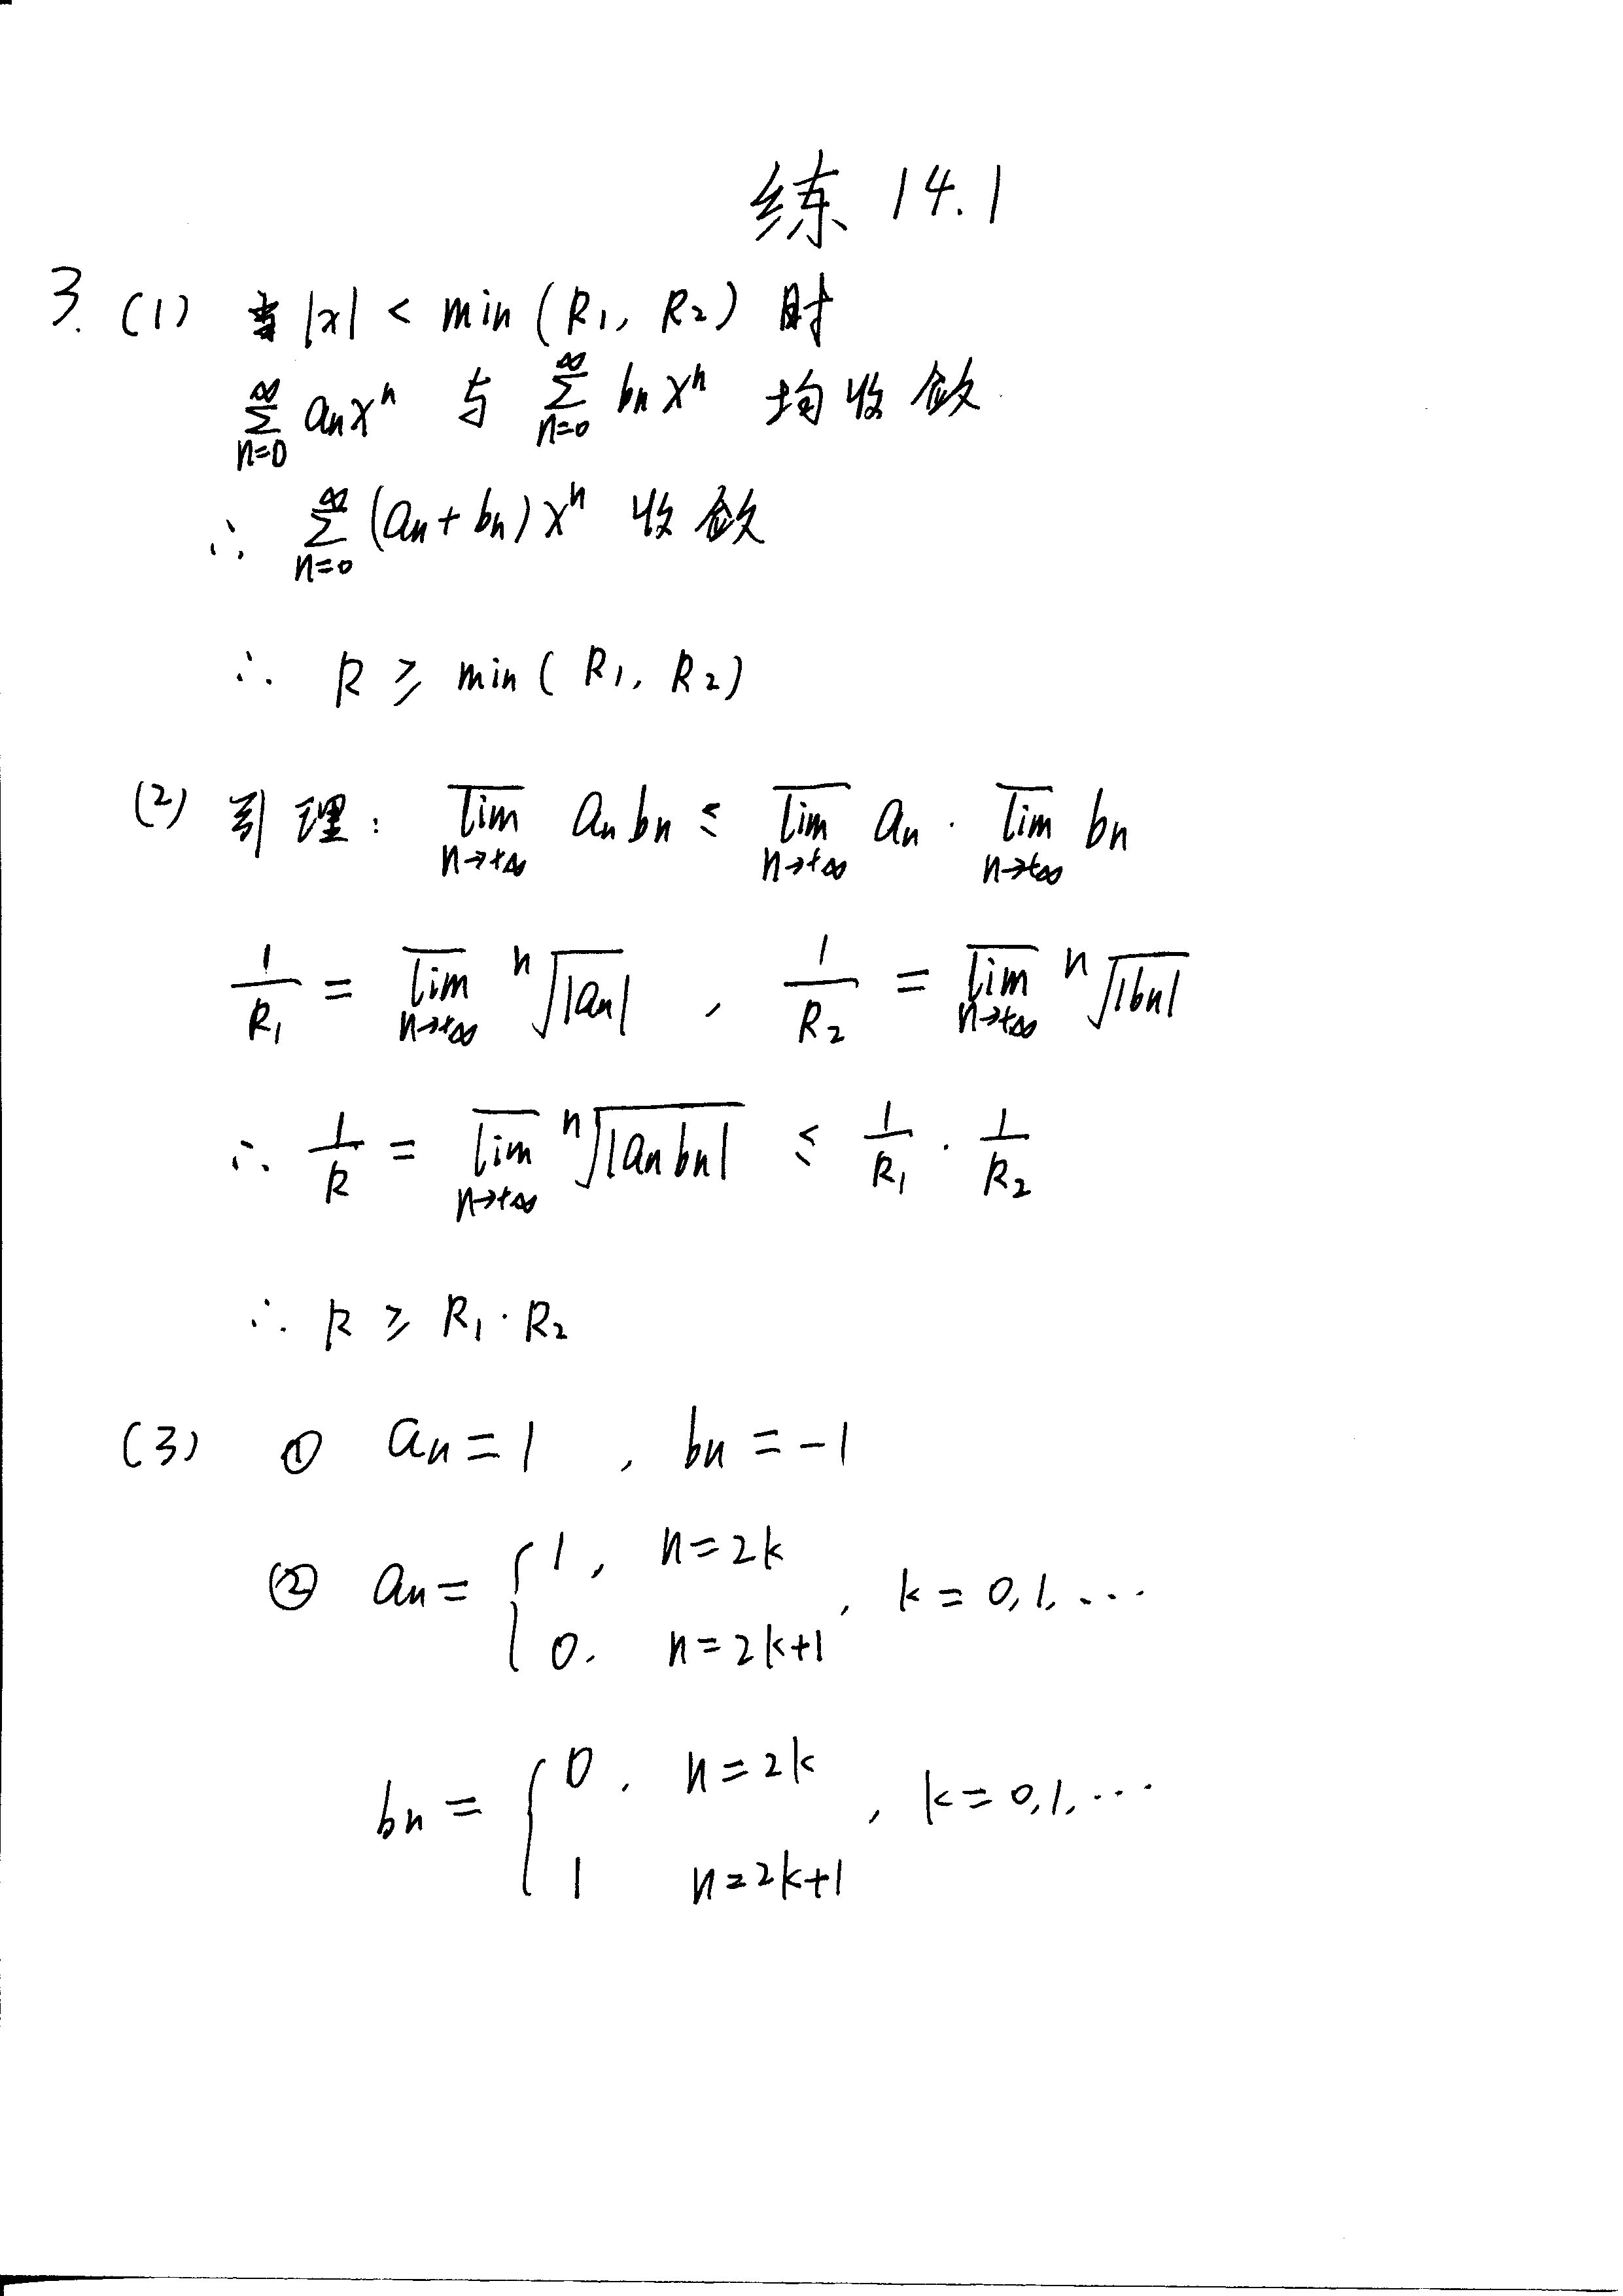 练 14.1
3. (1) 当 |x| < min (R₁, R₂) 时
∑_{n=0}^{∞} aₙxⁿ 与 ∑_{n=0}^{∞} bₙxⁿ 均收敛
∴ ∑_{n=0}^{∞} (aₙ + bₙ) xⁿ 收敛
∴ R ≥ min ( R₁, R₂ )
(2) 引理: \overline{lim}_{n→+∞} aₙbₙ ≤ \overline{lim}_{n→+∞} aₙ · \overline{lim}_{n→+∞} bₙ
1/R₁ = \overline{lim}_{n→+∞} ⁿ√|aₙ| , 1/R₂ = \overline{lim}_{n→+∞} ⁿ√|bₙ|
∴ 1/R = \overline{lim}_{n→+∞} ⁿ√|aₙbₙ| ≤ 1/R₁ · 1/R₂
∴ R ≥ R₁ · R₂
(3) ① aₙ = 1 , bₙ = -1
② aₙ = { 1, n = 2k
0, n = 2k+1 , k = 0, 1, ...
bₙ = { 0, n = 2k
1 n = 2k+1 , k = 0, 1, ...